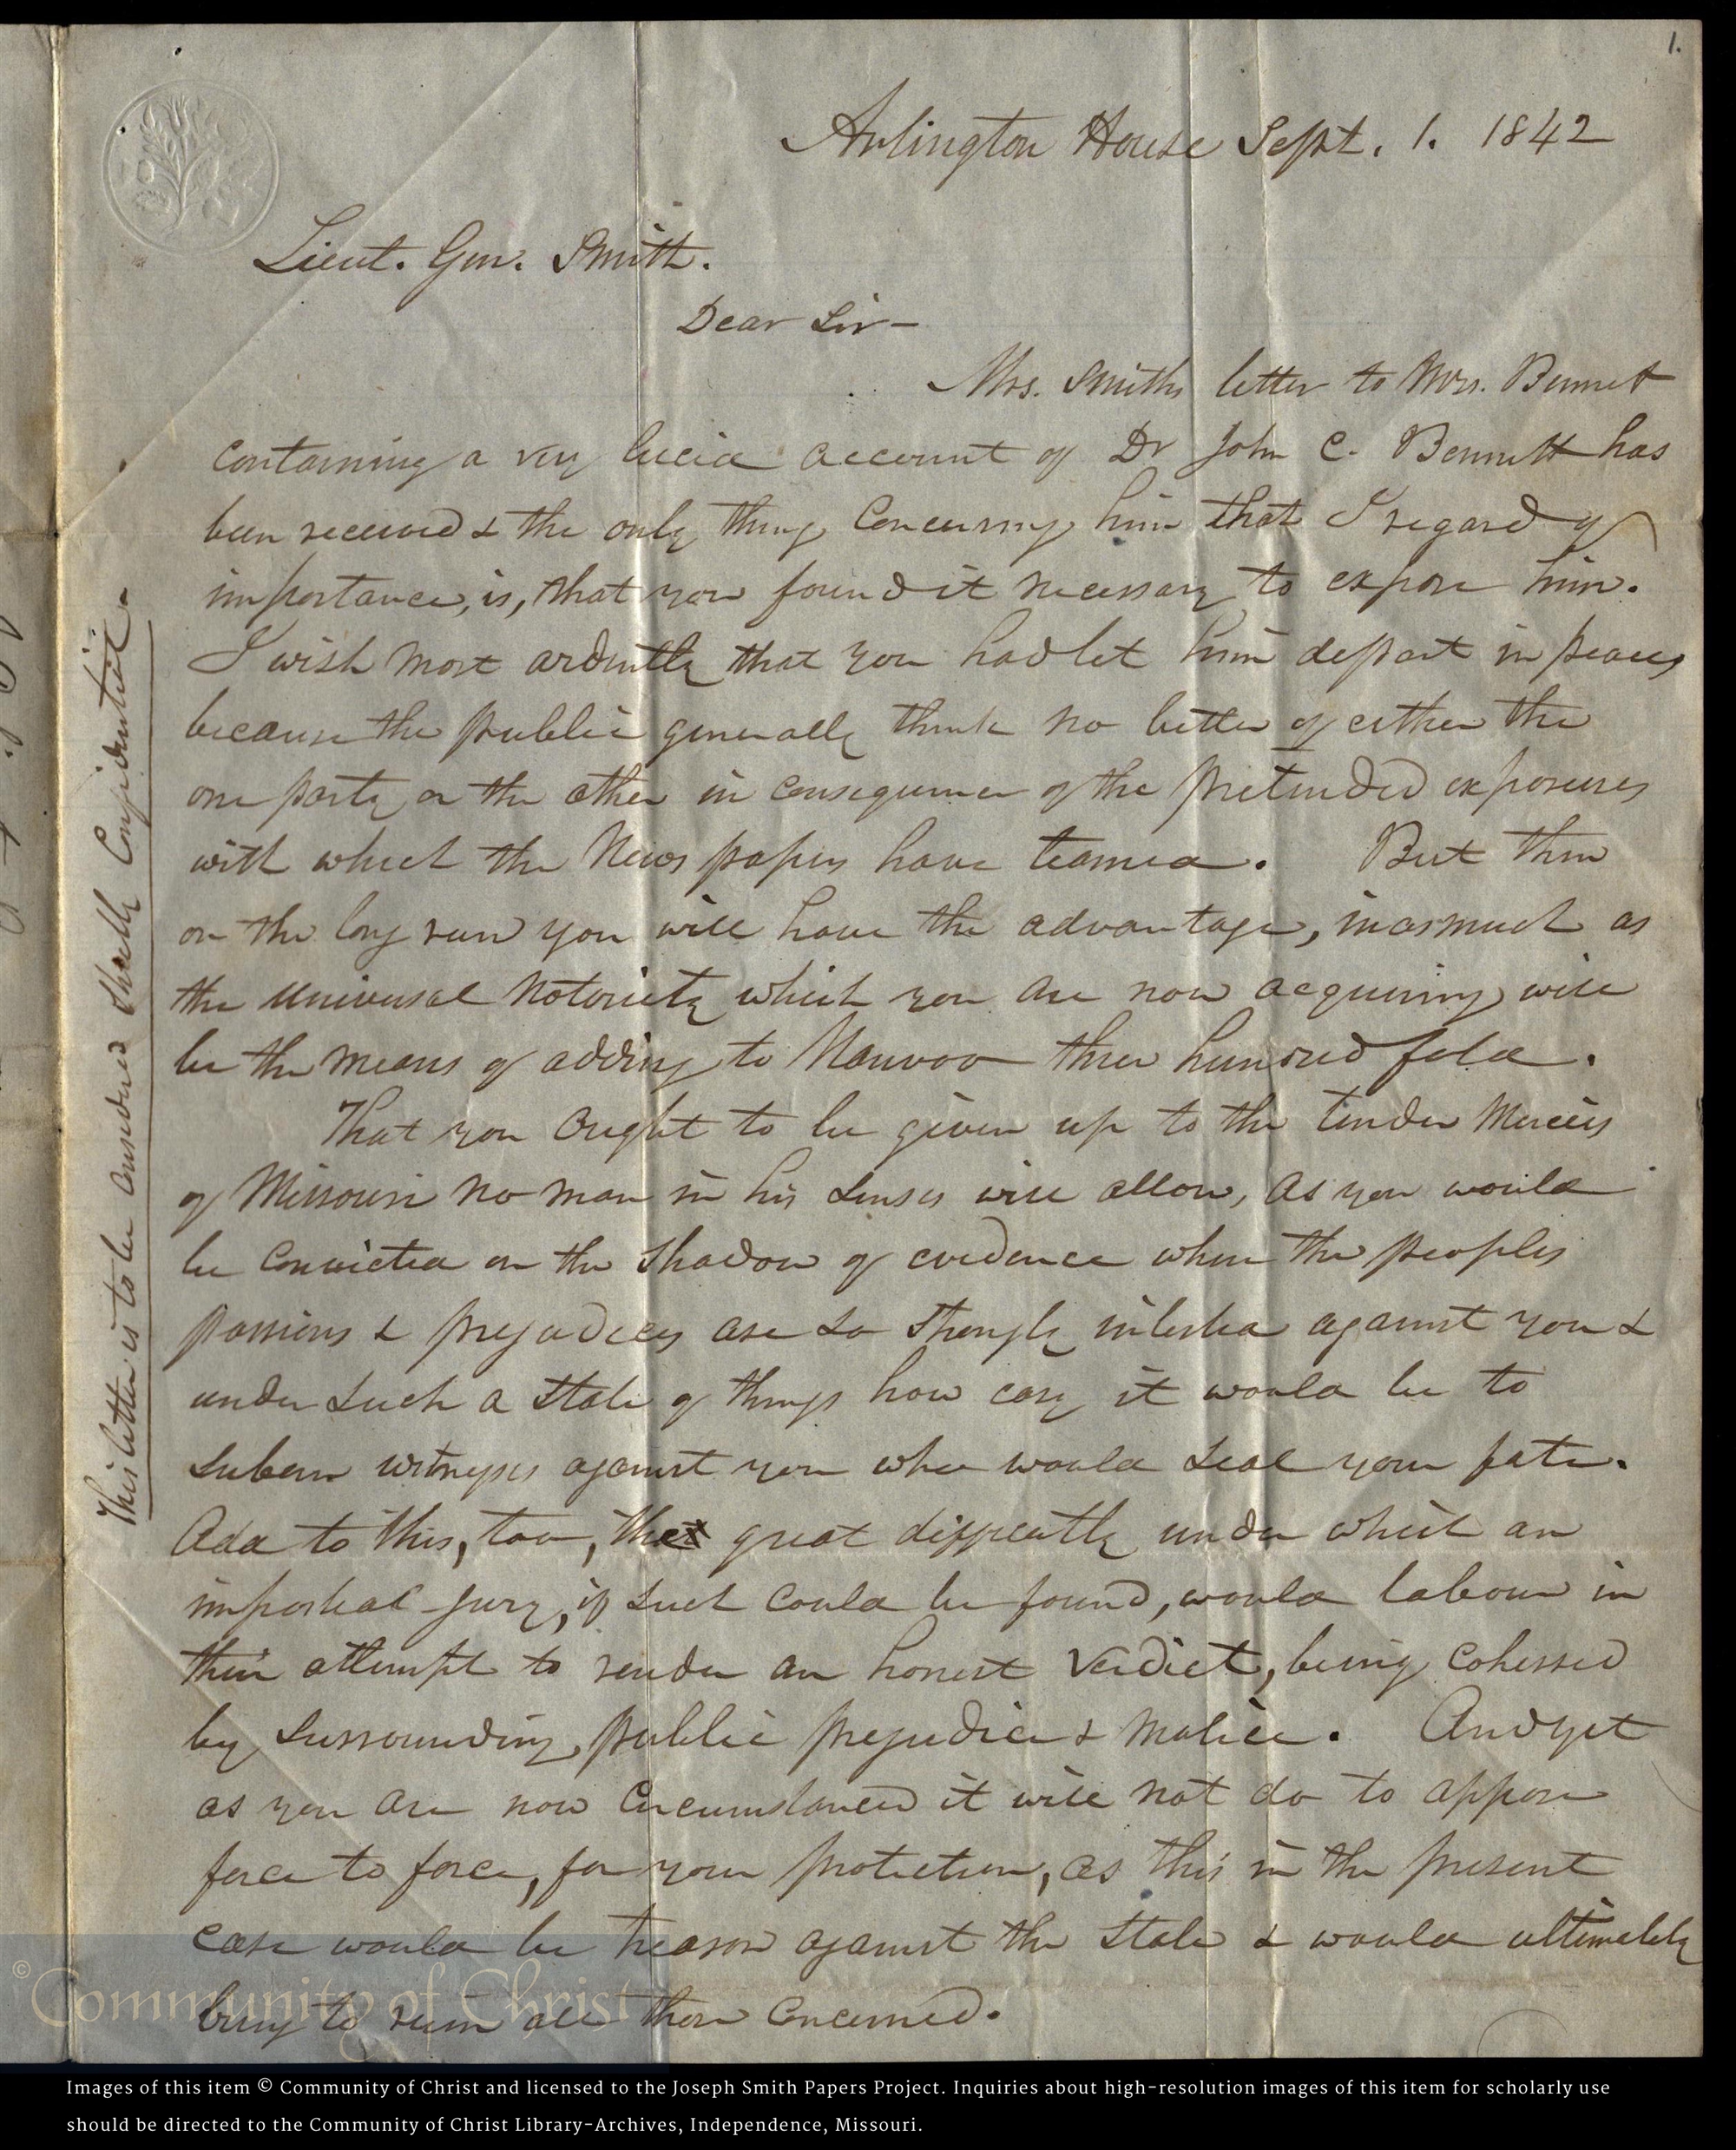 1.
Arlington House Sept. 1. 1842
Lieut. Gen. Smith.
Dear Sir—
Mrs. Smiths letter to Mrs. Bennet
containing a very lucid account of Dr John C. Bennett has
been received & the only thing concerning him that I regard of
importance, is, that you found it necessary to expose him.
I wish most ardently that you had let him depart in peace,
because the public generally think no better of either the
one party or the other in consequence of the pretended exposures
with which the News papers have teamed. But then
on the long run you will have the advantage, inasmuch as
the universal notoriety which you are now acquiring will
be the means of adding to Nauvoo three hundred fold.
That you ought to be given up to the tender mercies
of Missouri no man in his senses will allow, as you would
be convicted on the shadow of evidence when the peoples
passions & prejudices are so strongly enlisted against you &
under such a state of things how easy it would be to
suborn witnesses against you who would seal your fate.
Add to this, too, the great difficulty under which an
impartial jury, if such could be found, would labour in
their attempt to render an honest verdict, being cohessed
by surrounding public prejudice & malice. And yet
as you are now circumstanced it will not do to oppose
force to force, for your protection, as this in the present
case would be treason against the State & would ultimately
bring to ruin all those concerned.
This letter is to be considered strictly confidential.
© Community of Christ
Images of this item © Community of Christ and licensed to the Joseph Smith Papers Project. Inquiries about high-resolution images of this item for scholarly use
should be directed to the Community of Christ Library-Archives, Independence, Missouri.